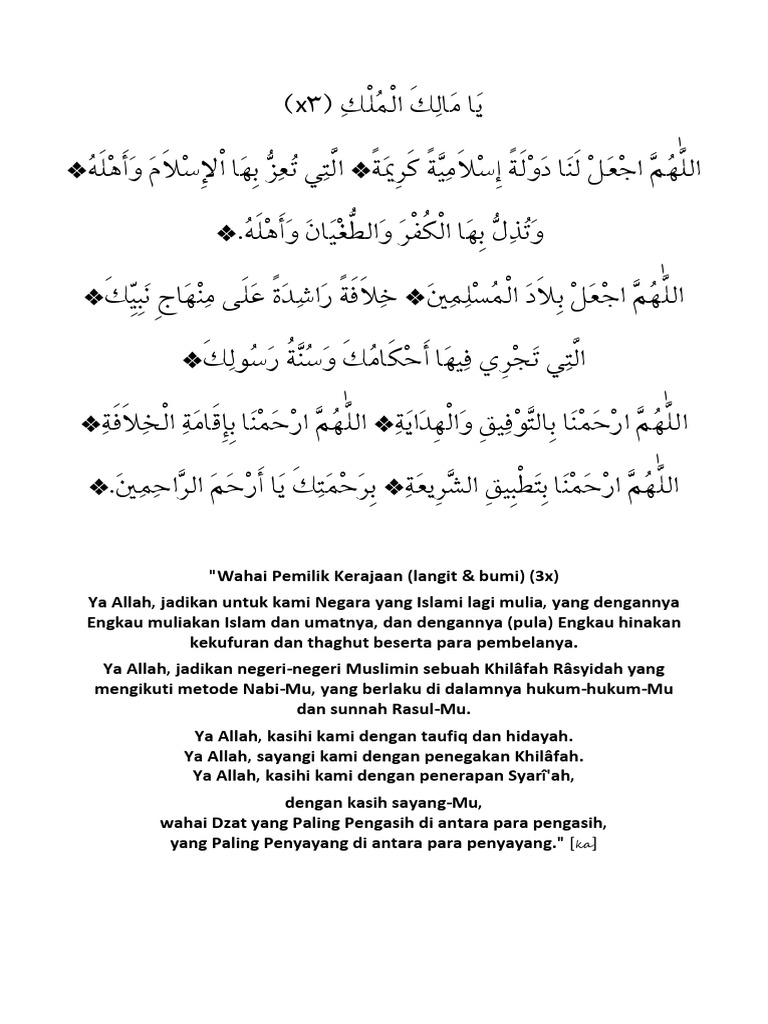 يَا مَالِكَ الْمُلْكِ (x٣)
اللَّهُمَّ اجْعَلْ لَنَا دَوْلَةً إِسْلَامِيَّةً كَرِيمَةً❖ الَّتِي تُعِزُّ بِهَا اْلإِسْلاَمَ وَأَهْلَهُ❖
وَتُذِلُّ بِهَا الْكُفْرَ وَالطُّغْيَانَ وَأَهْلَهُ.❖
اللَّهُمَّ اجْعَلْ بِلاَدَ الْمُسْلِمِينَ❖ خِلاَفَةً رَاشِدَةً عَلَى مِنْهَاجِ نَبِيِّكَ❖
الَّتِي تَجْرِي فِيهَا أَحْكَامُكَ وَسُنَّةُ رَسُولِكَ❖
اللَّهُمَّ ارْحَمْنَا بِالتَّوْفِيقِ وَالْهِدَايَةِ❖ اللَّهُمَّ ارْحَمْنَا بِإِقَامَةِ الْخِلاَفَةِ❖
اللَّهُمَّ ارْحَمْنَا بِتَطْبِيقِ الشَّرِيعَةِ❖ بِرَحْمَتِكَ يَا أَرْحَمَ الرَّاحِمِينَ.❖
"Wahai Pemilik Kerajaan (langit & bumi) (3x)
Ya Allah, jadikan untuk kami Negara yang Islami lagi mulia, yang dengannya
Engkau muliakan Islam dan umatnya, dan dengannya (pula) Engkau hinakan
kekufuran dan thaghut beserta para pembelanya.
Ya Allah, jadikan negeri-negeri Muslimin sebuah Khilâfah Râsyidah yang
mengikuti metode Nabi-Mu, yang berlaku di dalamnya hukum-hukum-Mu
dan sunnah Rasul-Mu.
Ya Allah, kasihi kami dengan taufiq dan hidayah.
Ya Allah, sayangi kami dengan penegakan Khilâfah.
Ya Allah, kasihi kami dengan penerapan Syarî'ah,
dengan kasih sayang-Mu,
wahai Dzat yang Paling Pengasih di antara para pengasih,
yang Paling Penyayang di antara para penyayang." [ka]